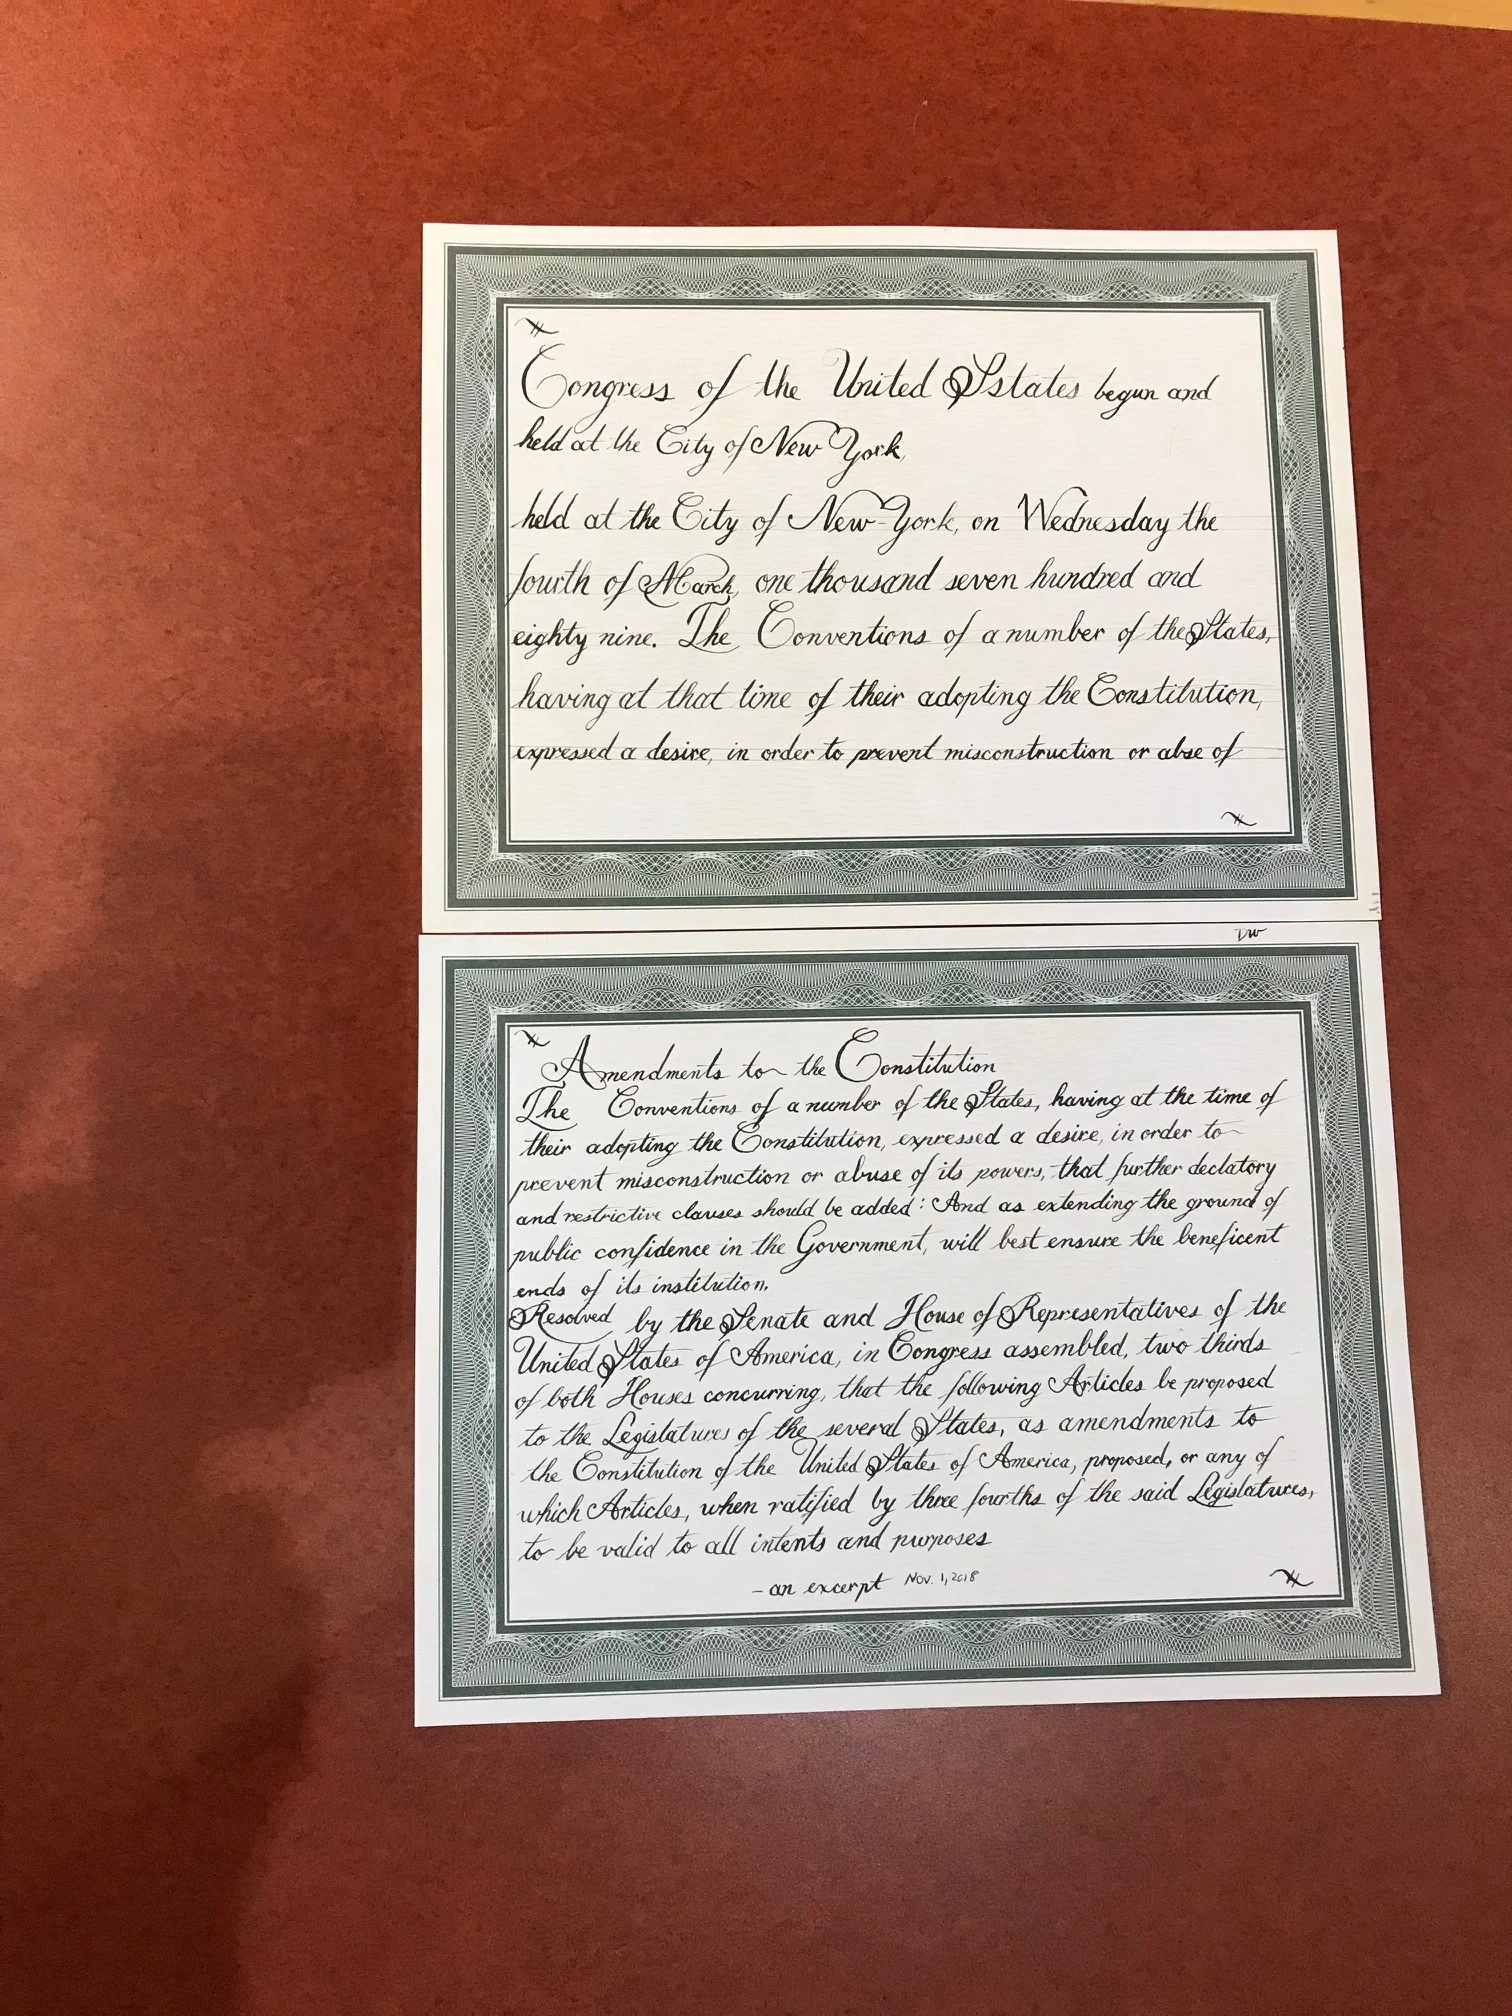 Congress of the United Sstates begun and
held at the City of New York,
held at the City of New-York, on Wednesday the
fourth of March, one thousand seven hundred and
eighty nine. The Conventions of a number of the States,
having at that time of their adopting the Constitution,
expressed a desire, in order to prevent misconstruction or abse of
DW
Amendments to the Constitution
The Conventions of a number of the States, having at the time of
their adopting the Constitution, expressed a desire, in order to
prevent misconstruction or abuse of its powers, that further declatory
and restrictive clauses should be added: And as extending the ground of
public confidence in the Government, will best ensure the beneficent
ends of its institution.
Resolved by the Senate and House of Representatives of the
United States of America, in Congress assembled, two thirds
of both Houses concurring, that the following Articles be proposed
to the Legislatures of the several States, as amendments to
the Constitution of the United States of America, proposed, or any of
which Articles, when ratified by three fourths of the said Legislatures,
to be valid to all intents and purposes
- an excerpt Nov. 1, 2018